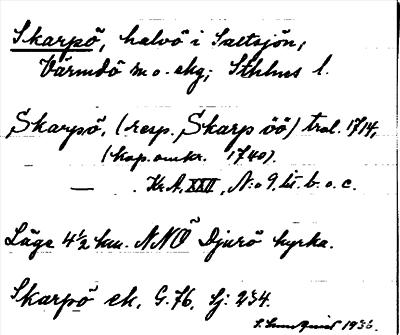 Skarpö, halvö i Saltsjön,
Värmdö m o. ekg; Sthlms l.
Skarpö, (resp. Skarp öö) trol. 1714,
(kop. omkr. 1740).
— Kr.A. XXII, N:o 9, lit. b. o. c.
Läge 4½ km. NNÖ Djurö kyrka.
Skarpö ek. G. 76. Sj: 234.
1936.